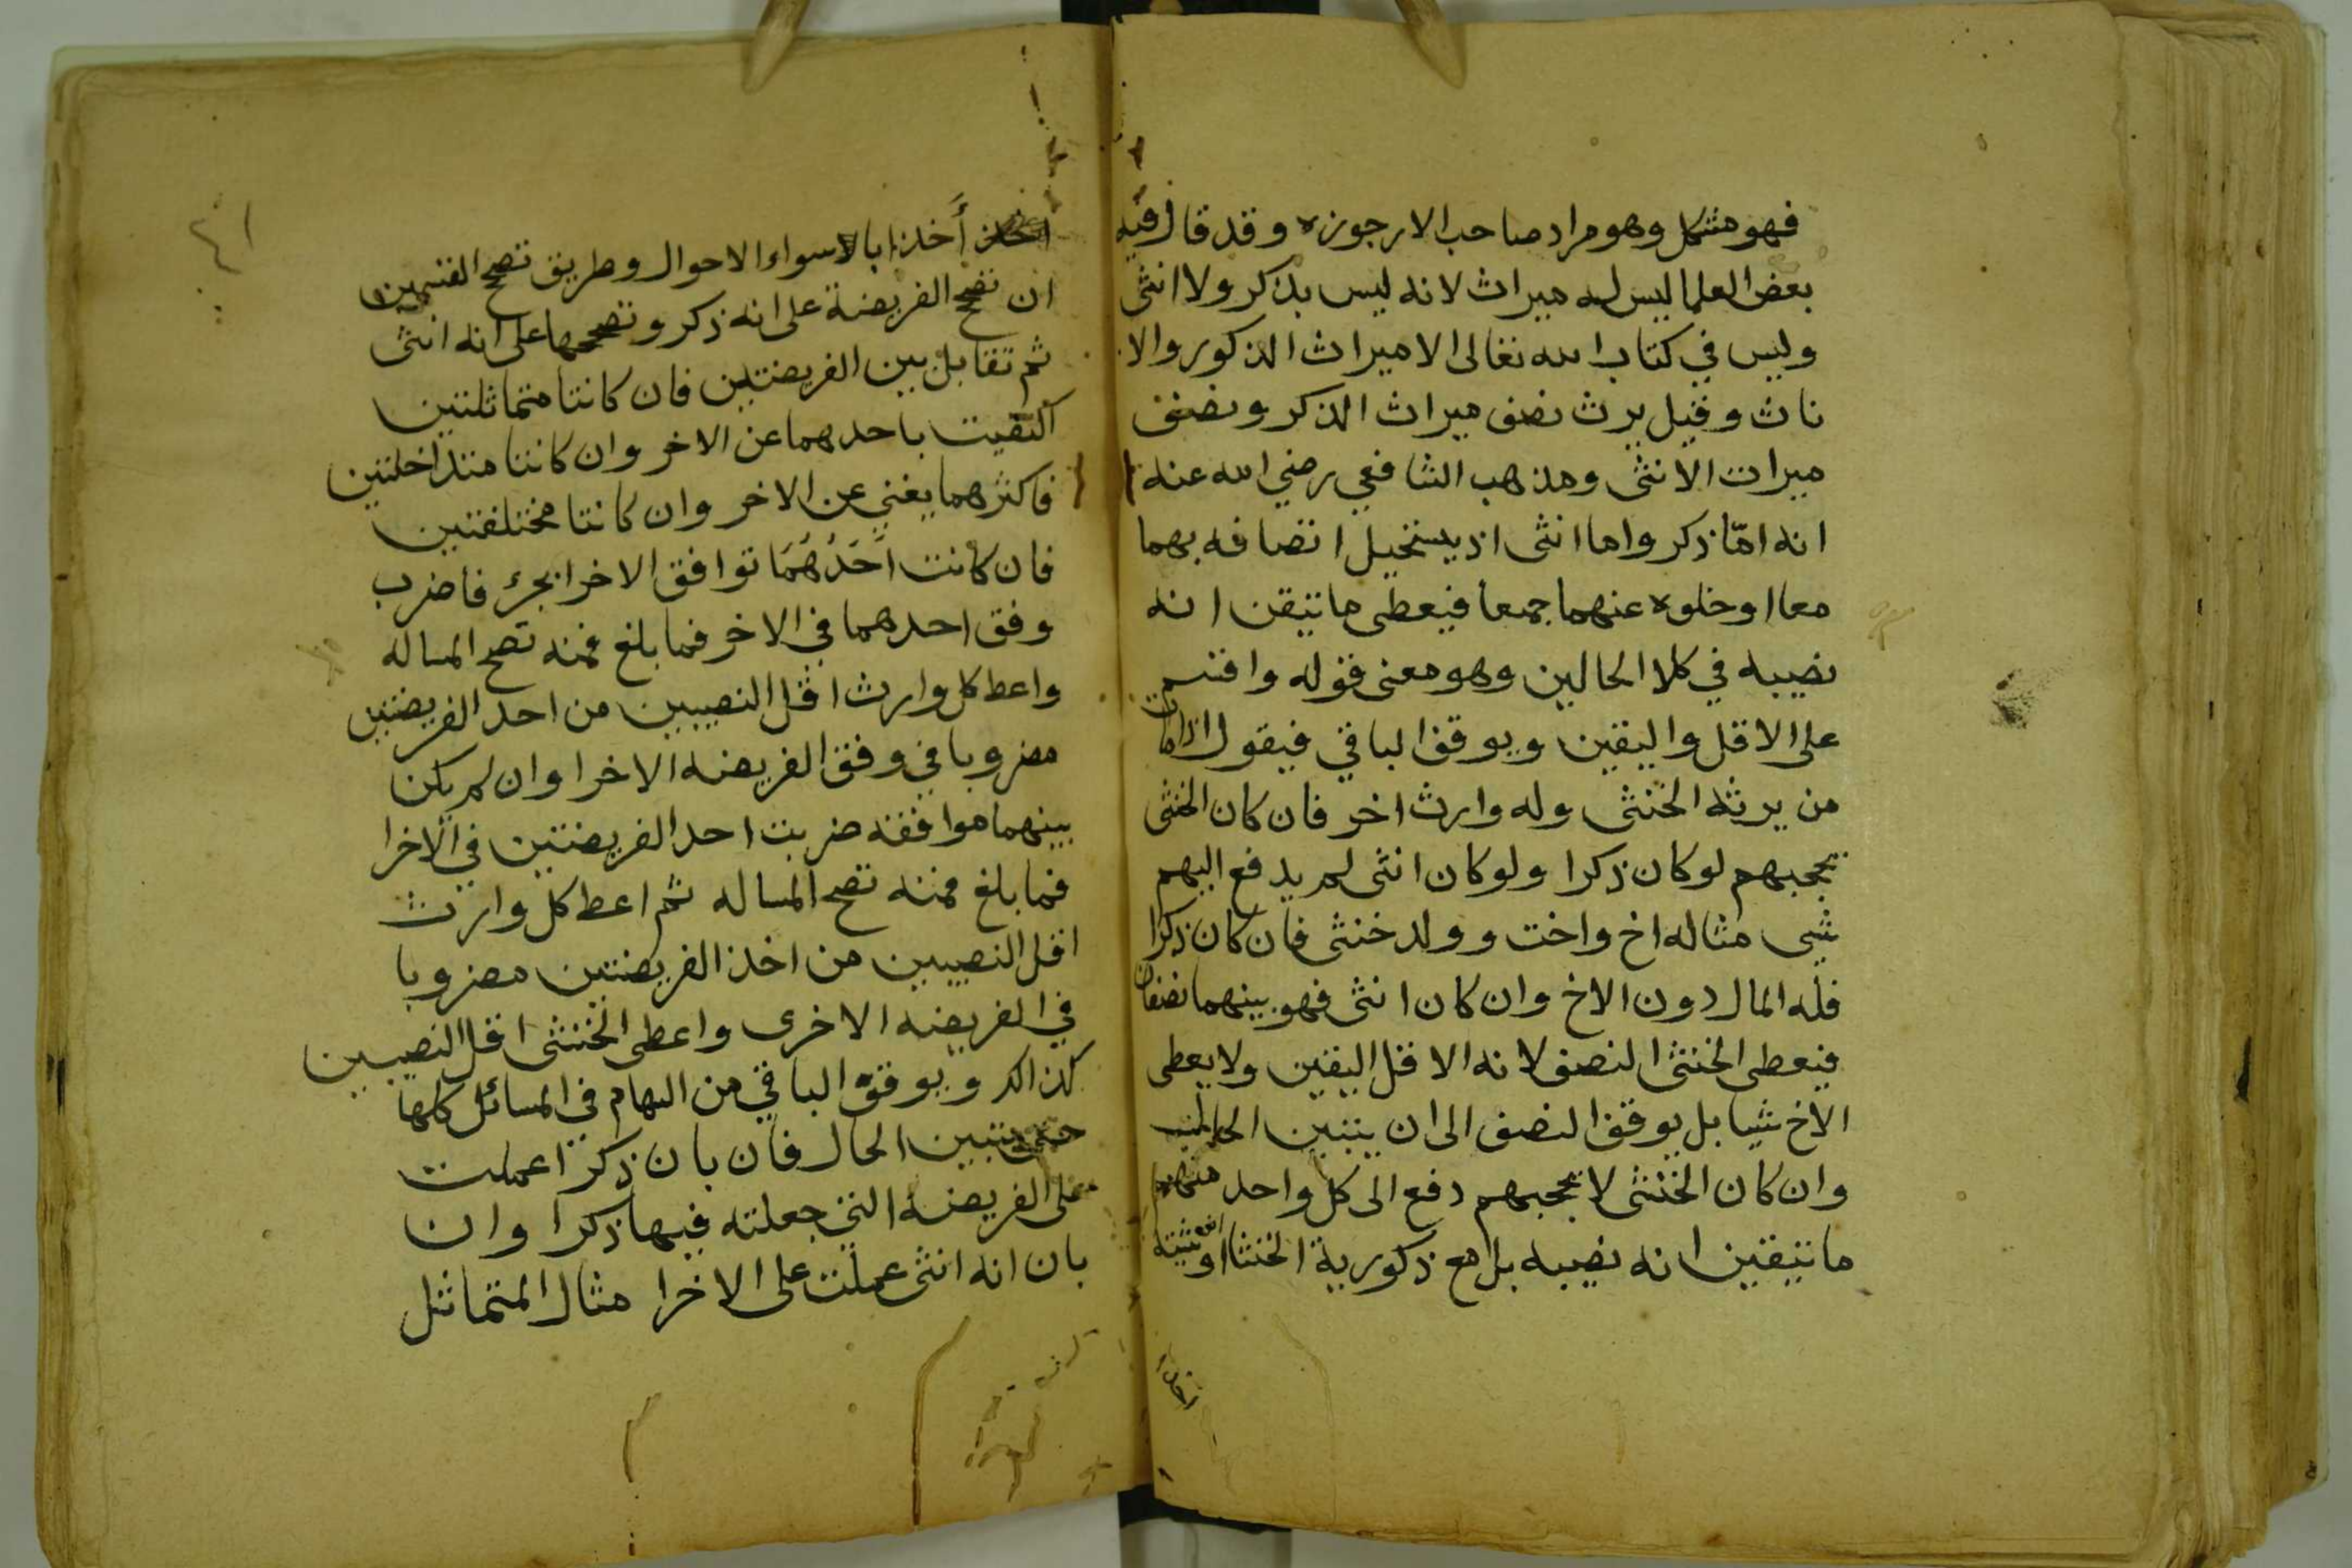 فهو مشكل وهو مراد صاحب الارجوزه وقد قال فيه
بعض العلما ليس له ميراث لانه ليس بذكر ولا انثى
وليس في كتاب الله تعالى الا ميراث الذكور والا
ناث وقيل يرث نصف ميراث الذكر ونصف
ميراث الانثى ومذهب الشافعي رضي الله عنه
انه امّا ذكر واما انثى اذ يستحيل اتصافه بهما
معا او خلوه عنهما جمعا فيعطى ما تيقن انه
نصيبه في كلا الحالين وهو معنى قوله واقسم
على الاقل واليقين ويوقف الباقي فيقول اذا مات
من يرثه الخنثى وله وارث اخر فان كان الخنثى
يحجبهم لو كان ذكرا ولو كان انثى لم يدفع اليهم
شي مثاله اخ واخت وولد خنثى فان كان ذكرا
فله المال دون الاخ وان كان انثى فهو بينهما نصفان
فيعطى الخنثى النصف لانه الاقل اليقين ولا يعطى
الاخ شيا بل يوقف النصف الى ان يتبين الحال
وان كان الخنثى لا يحجبهم دفع الى كل واحد منهم
ما تيقين انه نصيبه بل مع ذكورية الخنثا او انثيته
اخذ
٤١
أخذا بالاسواء الاحوال وطريق تصحح القسمين
ان تصحح الفريضة على انه ذكر وتصححها على انه انثى
ثم تقابل بين الفريضتين فان كانتا متماثلتين
اكتفيت باحدهما عن الاخر وان كانتا متداخلتين
فاكثرهما يغني عن الاخر وان كانتا مختلفتين
فان كانت اَحَدُهُمَا توافق الاخرا بجزء فاضرب
وفق احدهما في الاخر فما بلغ فمنه تصح المساله
واعط كل وارث اقل النصيبين من احد الفريضتين
مضروبا في وفق الفريضه الاخرا وان لم يكن
بينهما موافقه ضربت احد الفريضتين في الاخرا
فما بلغ فمنه تصح المساله ثم اعط كل وارث
اقل النصيبين من اخذ الفريضتين مضروبا
في الفريضه الاخرى واعطى الخنثى اقل النصيبين
كذالك ويوقف الباقي من السهام في المسائل كلها
حتى يتبين الحال فان بان ذكرا عملت
على الفريضه التي جعلته فيها ذكرا وان
بان انه انثى عملت على الاخرا مثال المتماثل